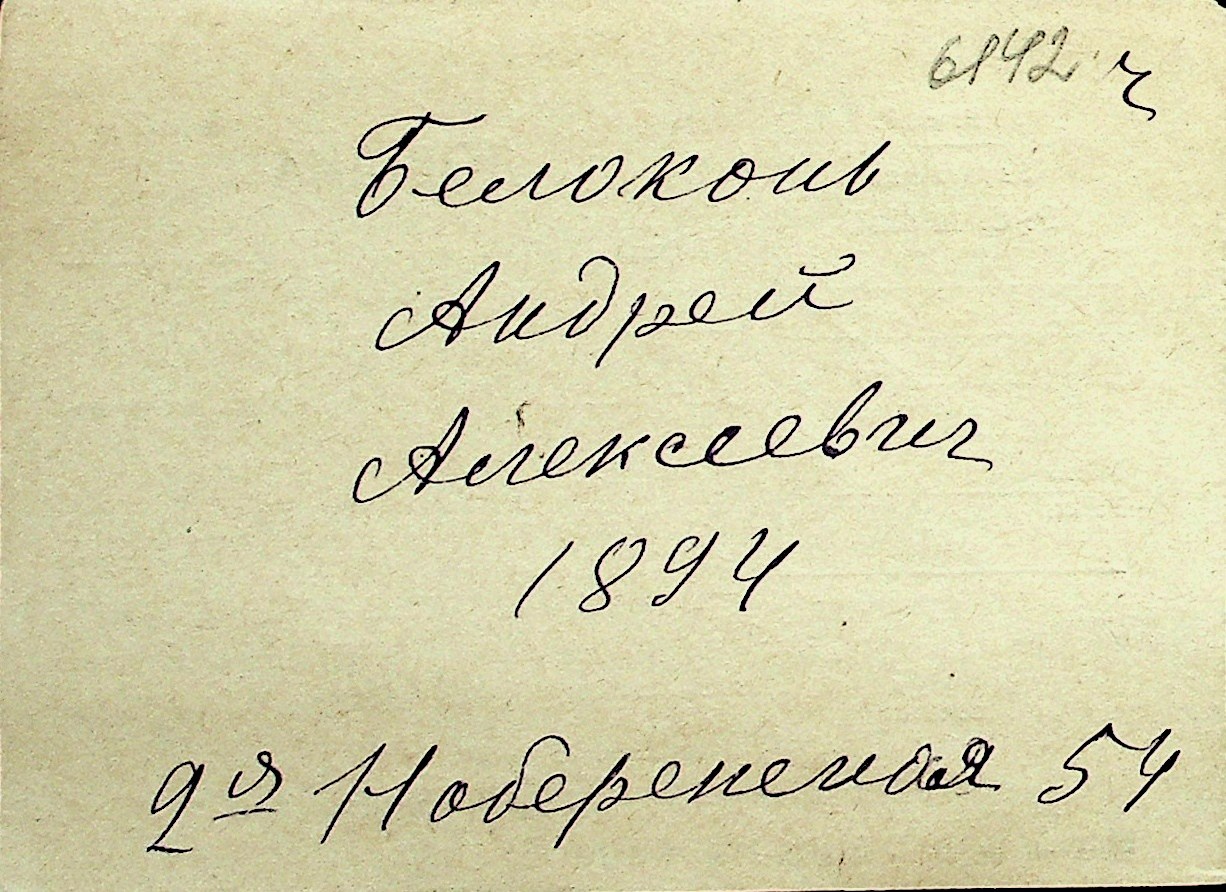 6142 ч
Белоконь
Андрей
Алексеевич
1894
2ая Набережная 54